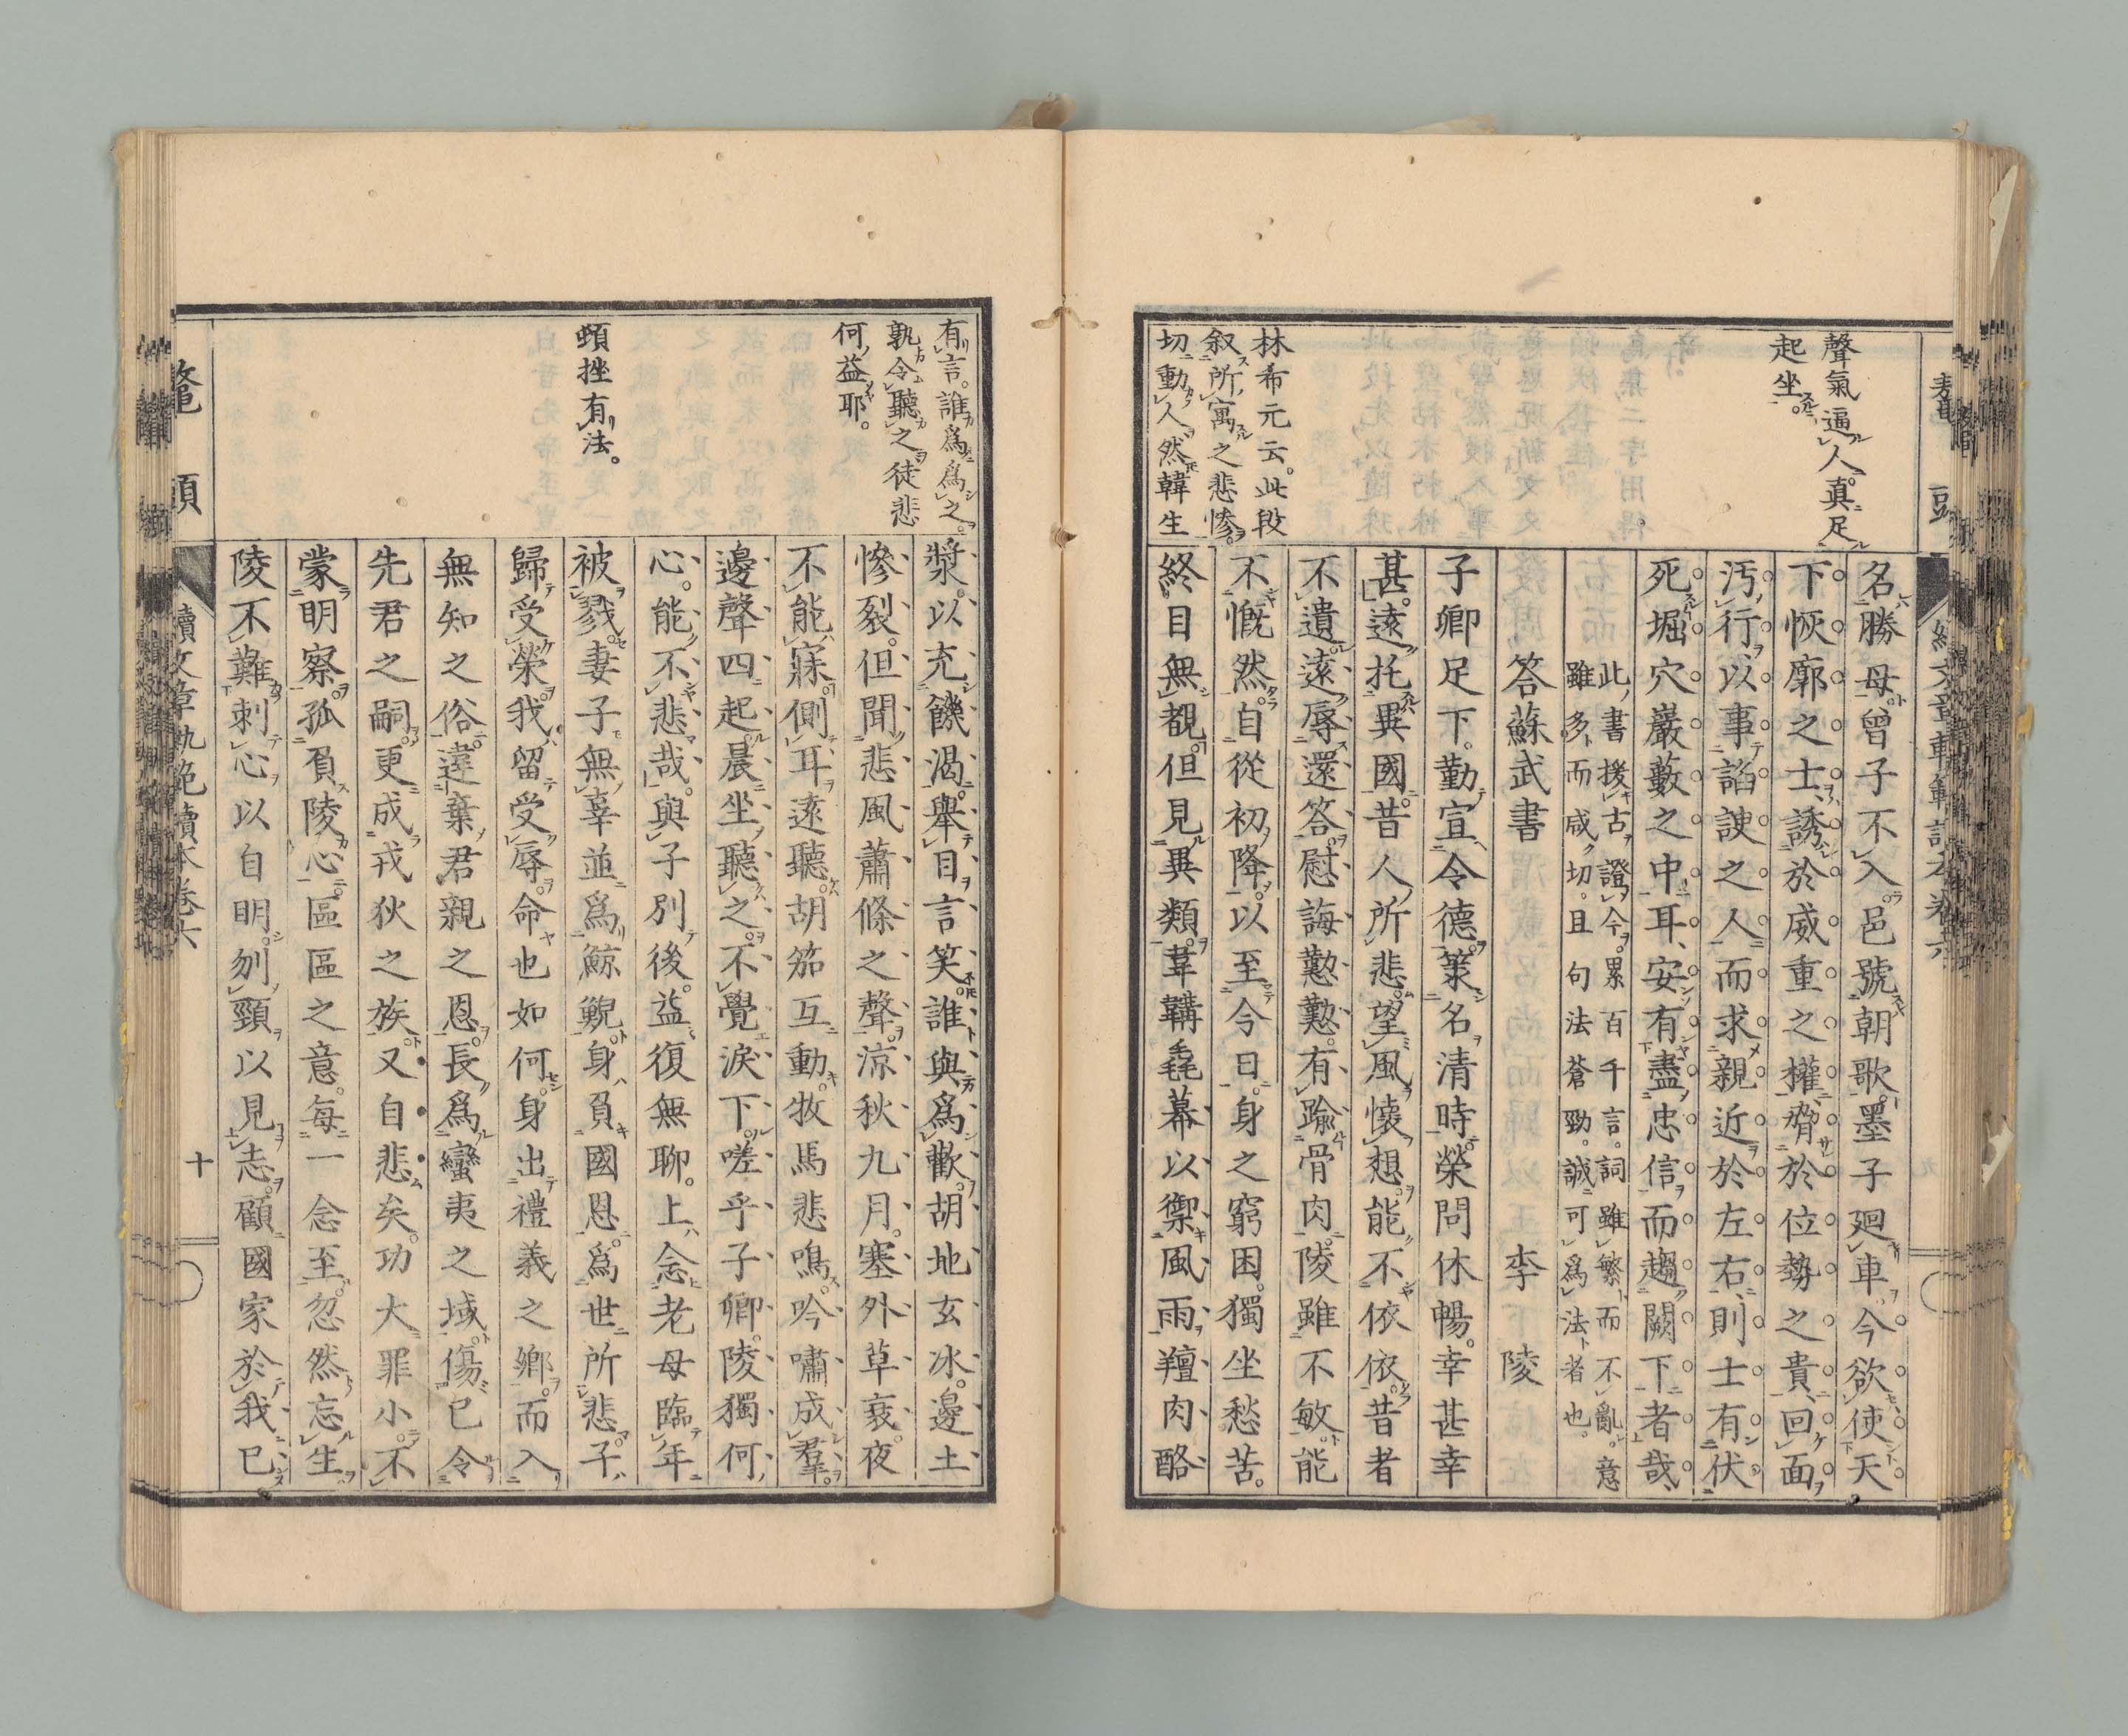 聲氣逼人真足
起坐。
林希元云。此段
叙所寓之悲慘。
切動人然韓生
名勝母。曾子不入。邑號朝歌。墨子廻車。今欲使天
下恢廓之士、誘於威重之權、脅於位勢之貴、回面
汚行、以事諂諛之人、而求親近於左右、則士有伏
死堀穴巖藪之中耳、安有盡忠信而趨闕下者哉、
此書援古證今。累百千言。詞雖繁而不亂。意
雖多而咸切。且句法蒼勁。誠可爲法者也。
答蘇武書　李陵
子卿足下。勤宣令德。策名清時。榮問休暢。幸甚幸
甚。遠托異國。昔人所悲。望風懷想。能不依依。昔者
不遺。遠辱還答。慰誨懃懃。有踰骨肉。陵雖不敏。能
不慨然。自從初降。以至今日。身之窮困。獨坐愁苦。
終目無覩。但見異類。韋韝毳幕。以禦風雨。羶肉酪
有言。誰爲爲之。
孰令聽之徒悲
何益耶。
頓挫有法。
漿。以充饑渴。舉目言笑。誰與爲歡。胡地玄冰。邊土
慘裂。但聞悲風蕭條之聲。涼秋九月。塞外草衰。夜
不能寐。側耳遠聽。胡笳互動。牧馬悲鳴。吟嘯成羣。
邊聲四起。晨坐聽之。不覺淚下。嗟乎子卿。陵獨何
心。能不悲哉。與子別後。益復無聊。上念老母臨年
被戮。妻子無辜。並爲鯨鯢。身負國恩。爲世所悲。子
歸受榮。我留受辱。命也如何。身出禮義之鄉。而入
無知之俗。違棄君親之恩。長爲蠻夷之域。傷已令
先君之嗣。更成戎狄之族。又自悲矣。功大罪小。不
蒙明察。孤負陵心。區區之意。每一念至。忽然忘生。
陵不難刺心以自明。刎頸以見志。顧國家於我已
鼇頭
續文章軌範讀本卷六
十